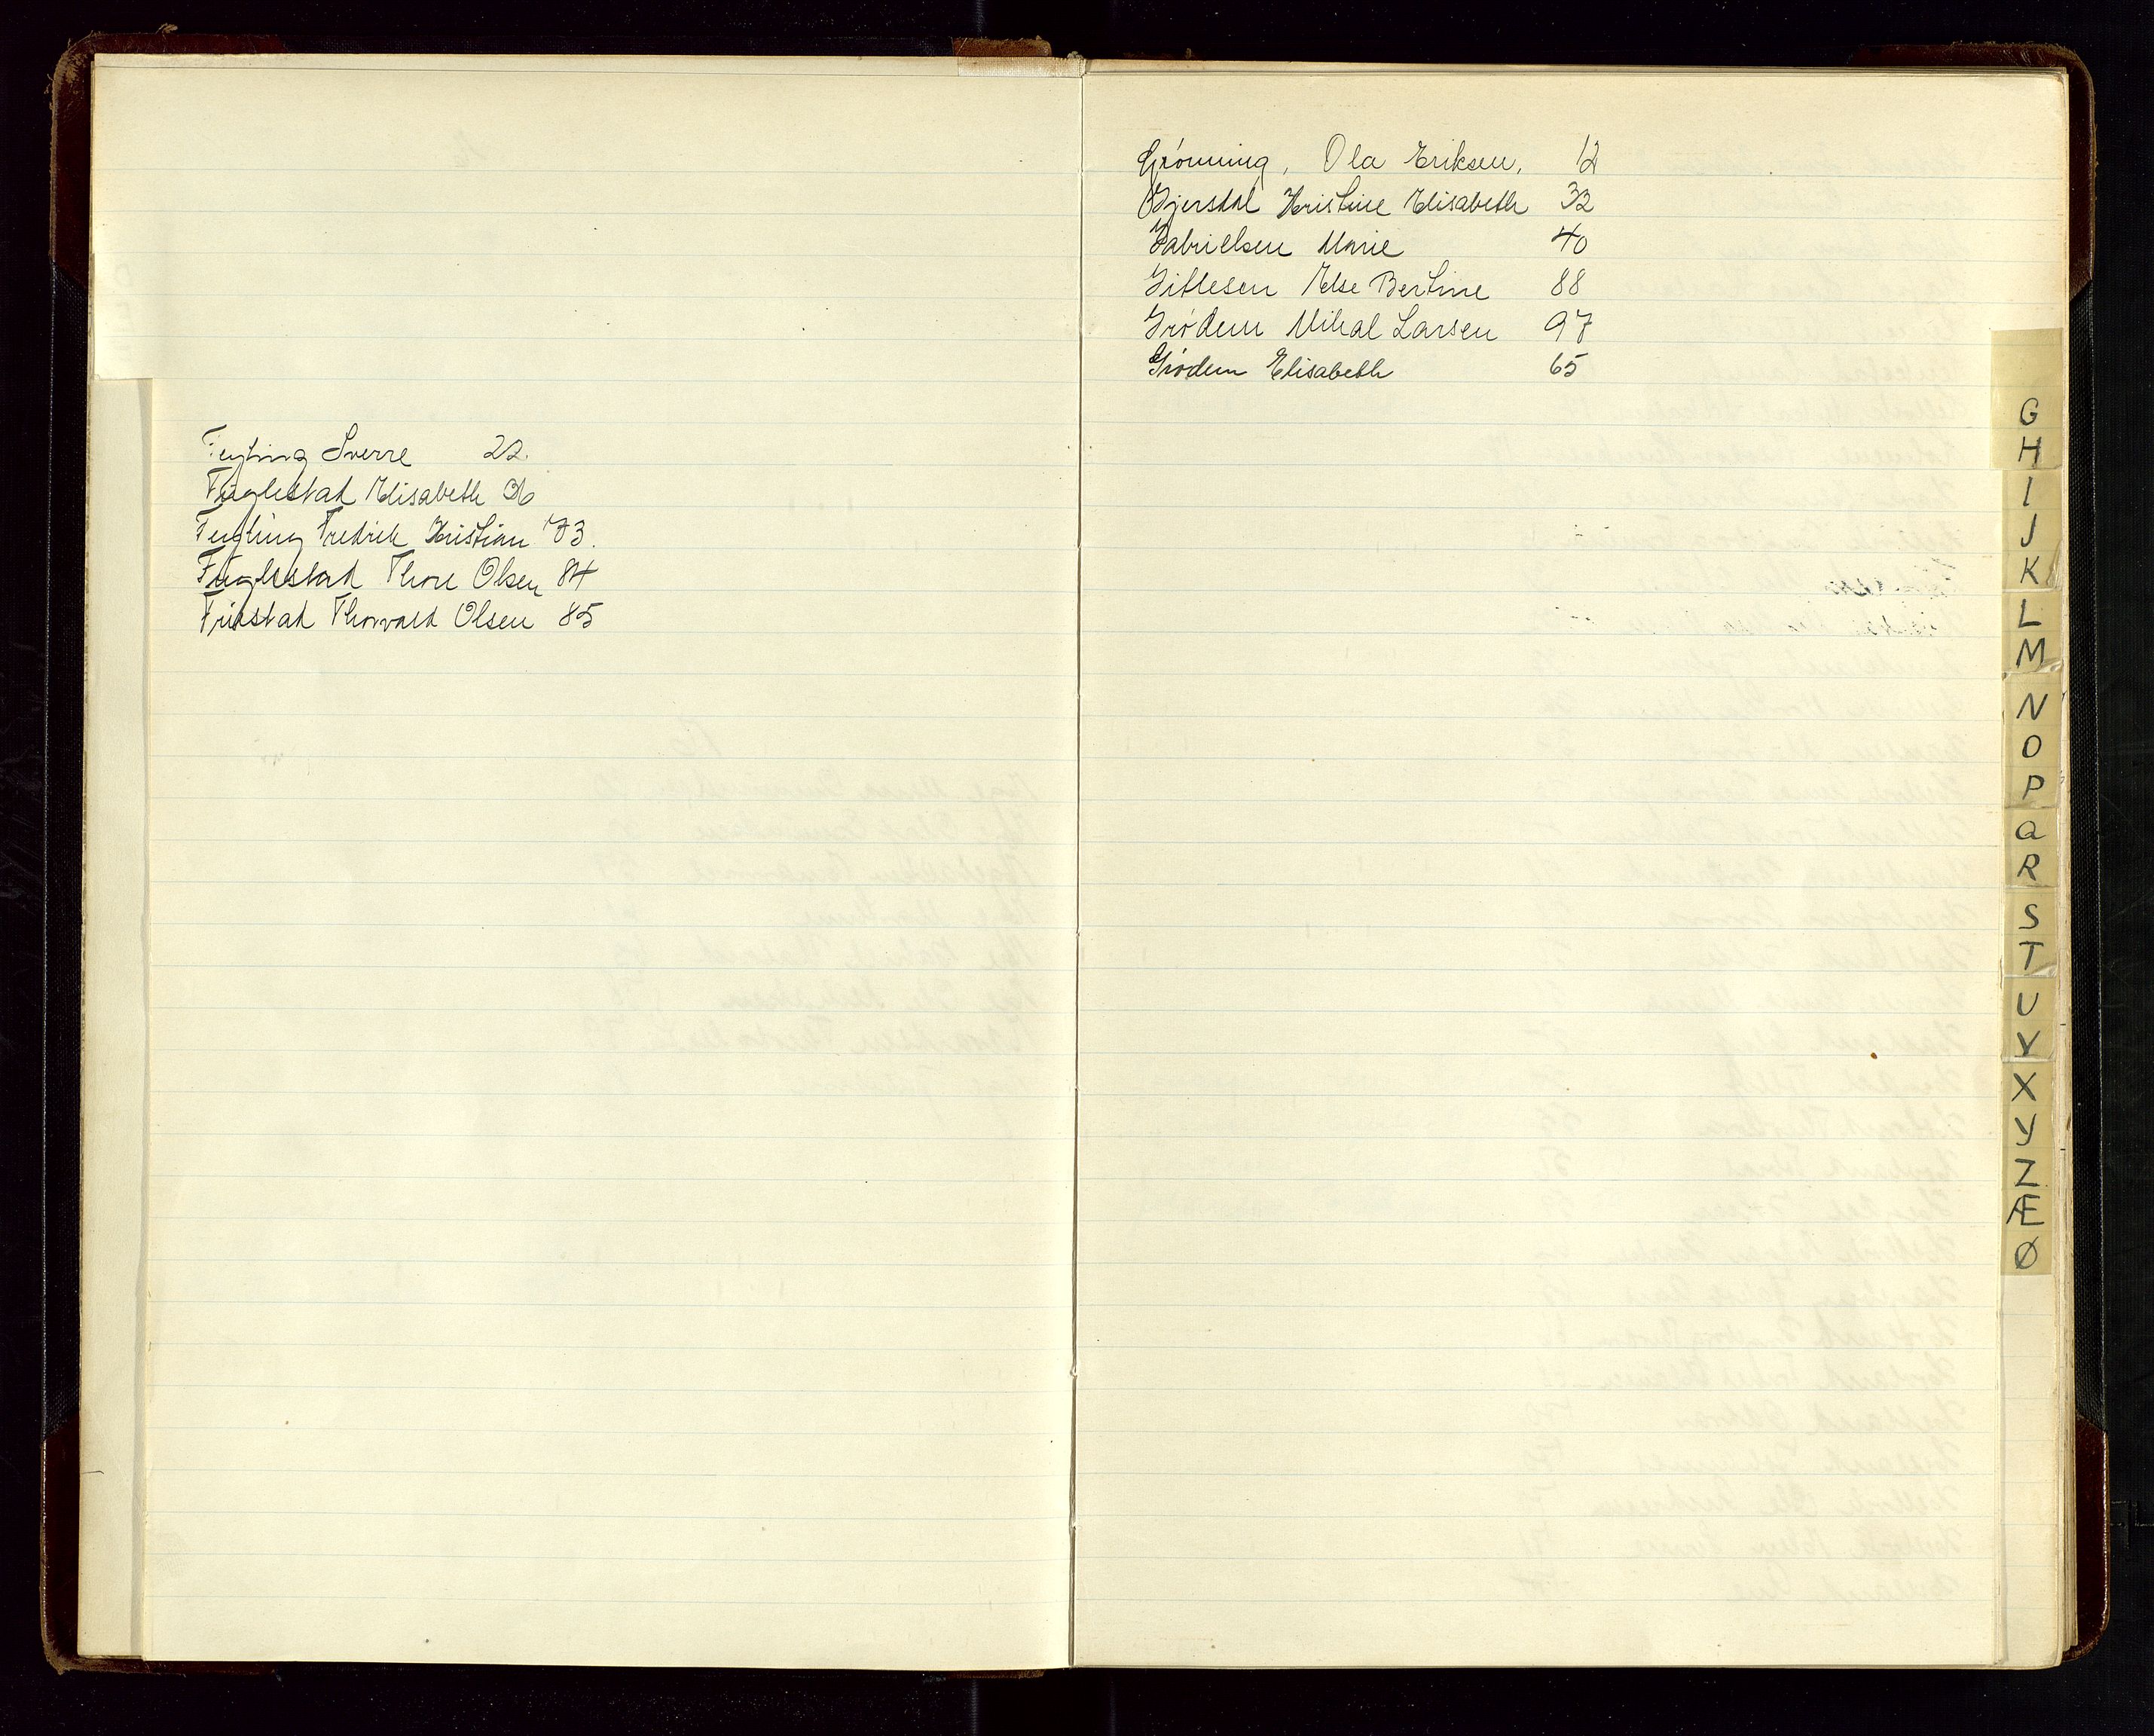 Feyling Sverre 22.
Fuglestad Elisabeth 36
Feyling Fredrik Kristian 73.
Fuglestad Thore Olsen 84
Frøstad Thorvald Olsen 85
Grønning, Ola Eriksen, 12
Gjersdal Kristine Elisabeth 32
Gabrielsen Marie 40
Gitlesen Else Bertine 88
Grødem Mikal Larsen 97
Grødem Elisabeth 65
G
H
I
J
K
L
M
N
O
P
Q
R
S
T
U
V
X
Y
Z
Æ
Ø